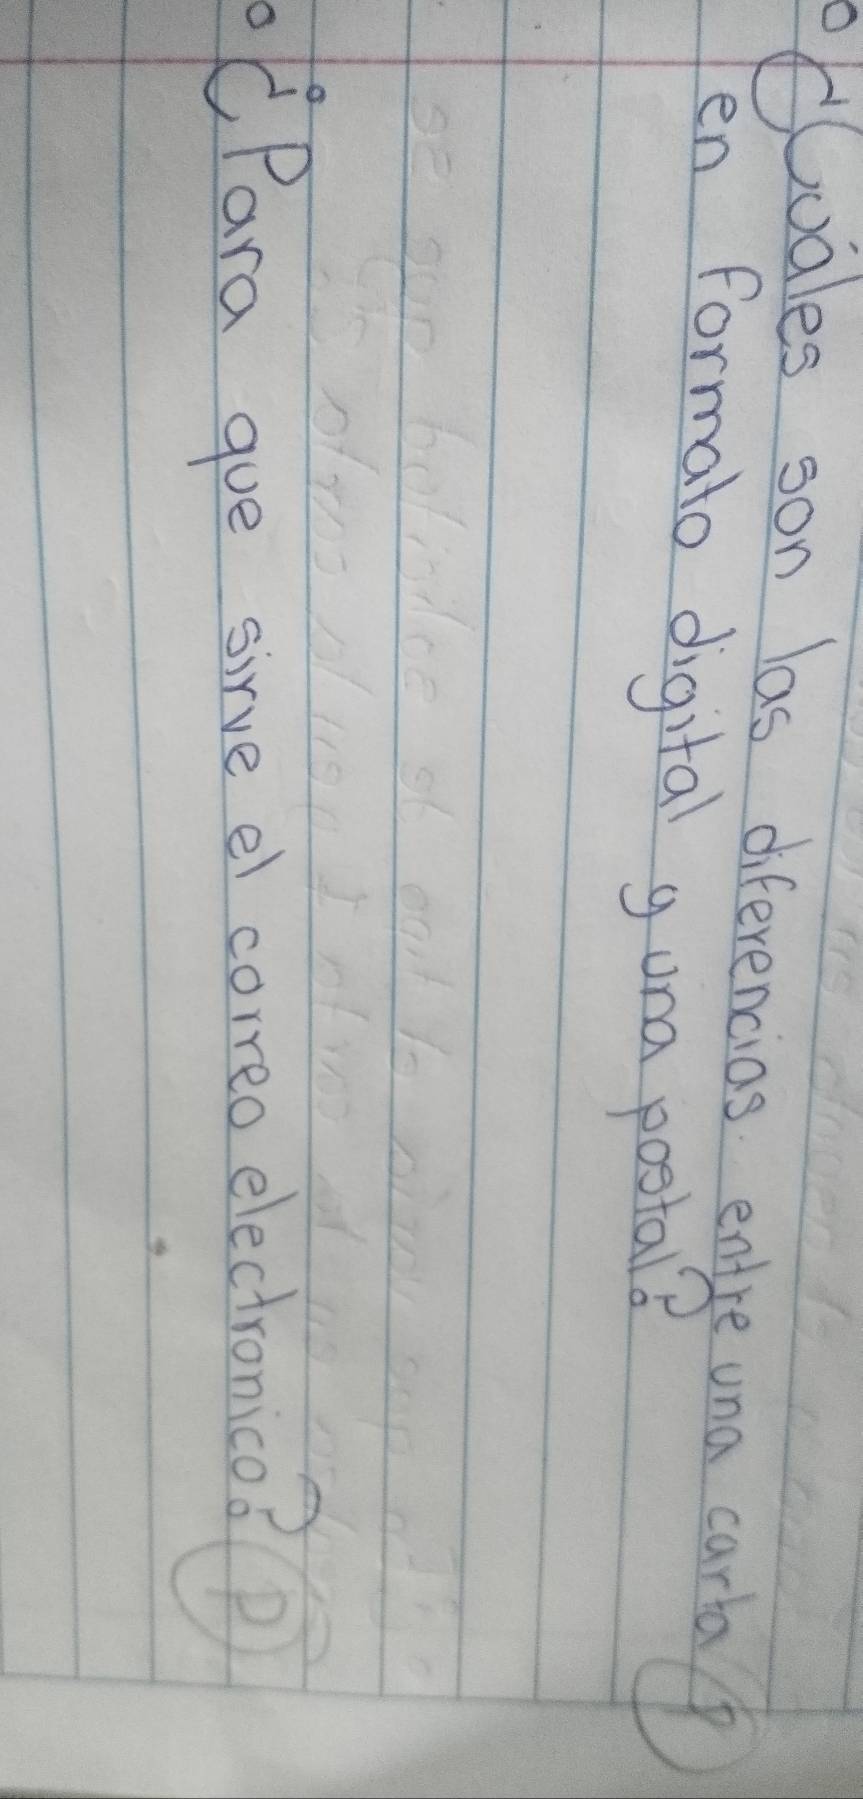 ° ¿Cuáles son las diferencias entre una carta P
en formato digital y una postal?
° ¿Para que sirve el correo electronico? P